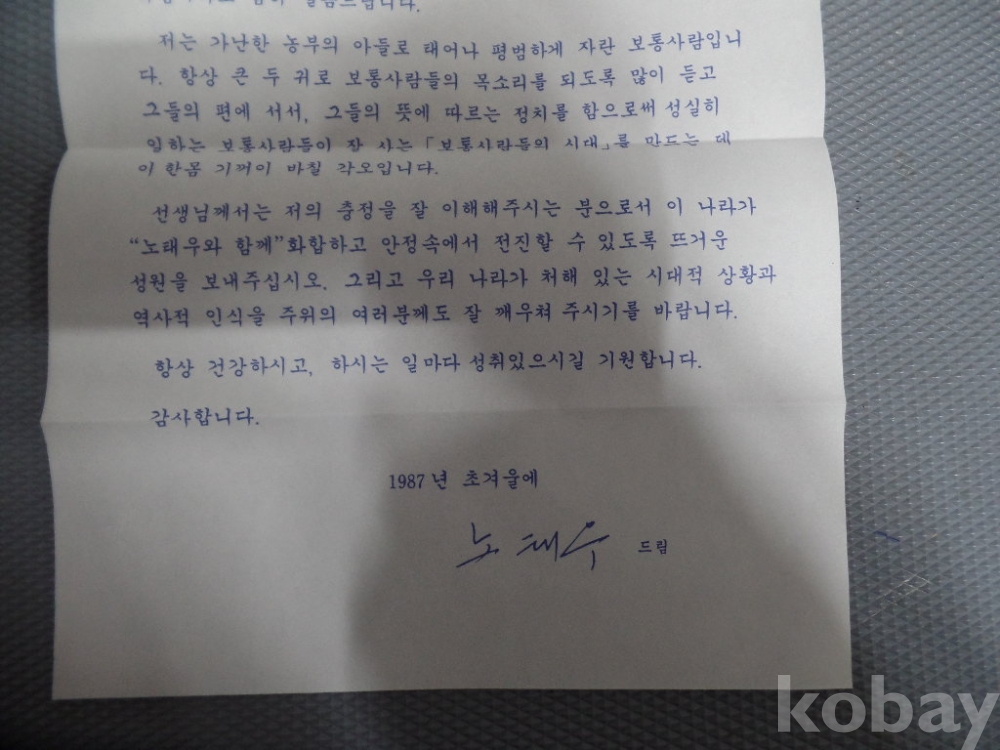 저는 가난한 농부의 아들로 태어나 평범하게 자란 보통사람입니
다. 항상 큰 두 귀로 보통사람들의 목소리를 되도록 많이 듣고
그들의 편에 서서, 그들의 뜻에 따르는 정치를 함으로써 성실히
일하는 보통사람들이 잘 사는 「보통사람들의 시대」를 만드는 데
이 한몸 기꺼이 바칠 각오입니다.
선생님께서는 저의 충정을 잘 이해해주시는 분으로서 이 나라가
“노태우와 함께”화합하고 안정속에서 전진할 수 있도록 뜨거운
성원을 보내주십시오. 그리고 우리 나라가 처해 있는 시대적 상황과
역사적 인식을 주위의 여러분께도 잘 깨우쳐 주시기를 바랍니다.
항상 건강하시고, 하시는 일마다 성취있으시길 기원합니다.
감사합니다.
1987년 초겨울에
노태우 드림
kobay